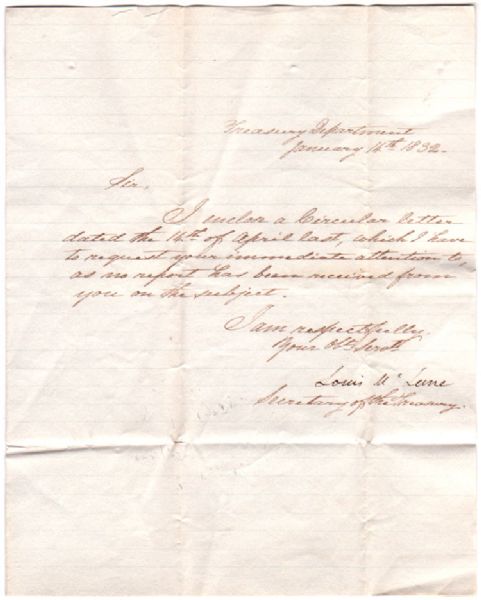 Treasury Department
January 14th 1832.
Sir,
I enclose a Circular letter
dated the 14th of April last, which I have
to request your immediate attention to,
as no report has been received from
you on the subject.
I am respectfully
Your Obt Servt
Louis McLane
Secretary of the Treasury.